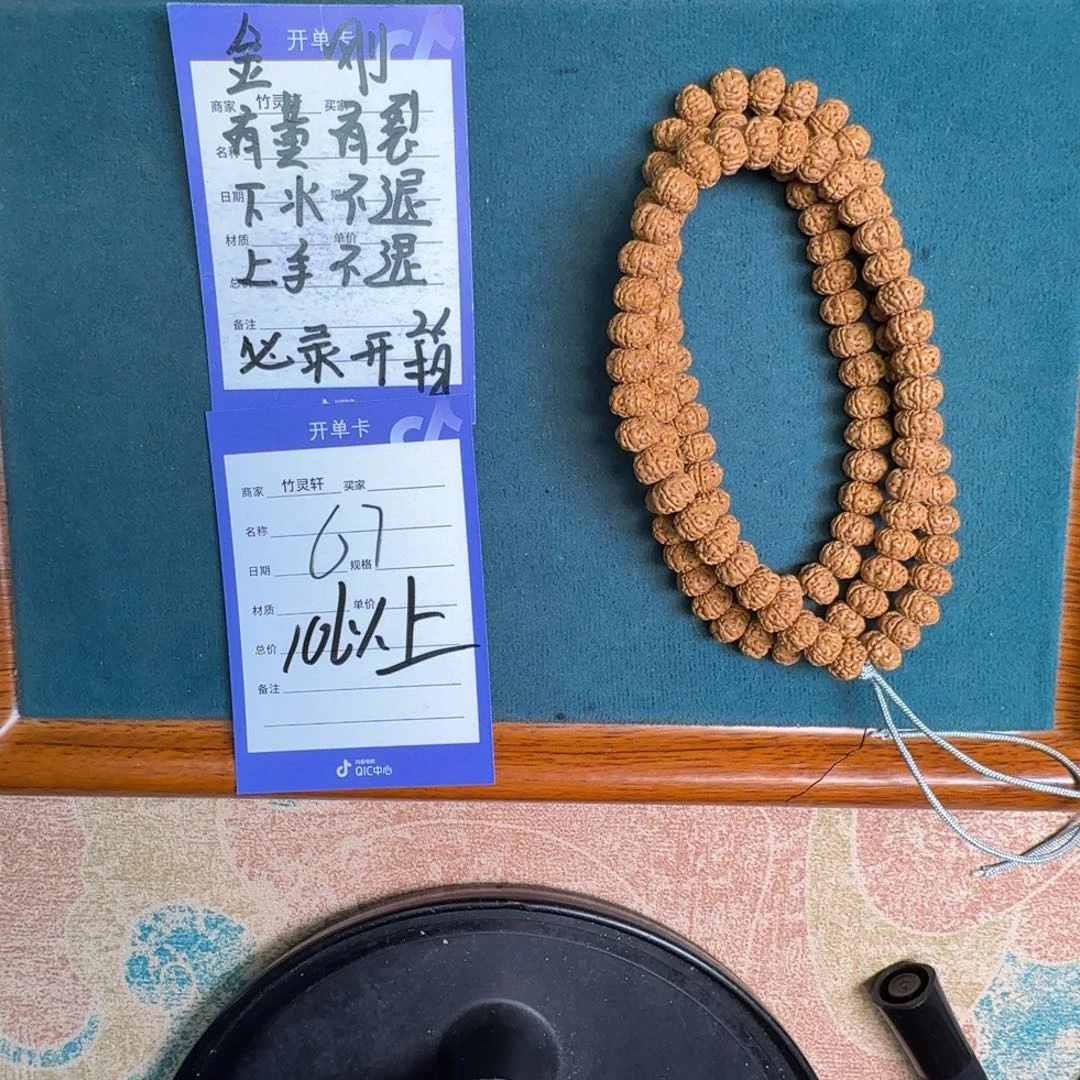 开单卡
金刚
商家 竹灵轩 买家
有黄有裂
名称
日期
下水不退
材质 单价
上手不退
总价
备注
必录开箱
开单卡
商家 竹灵轩 买家
名称
67
日期 规格
材质 单价
总价
106以上
备注
抖音电商
QIC中心